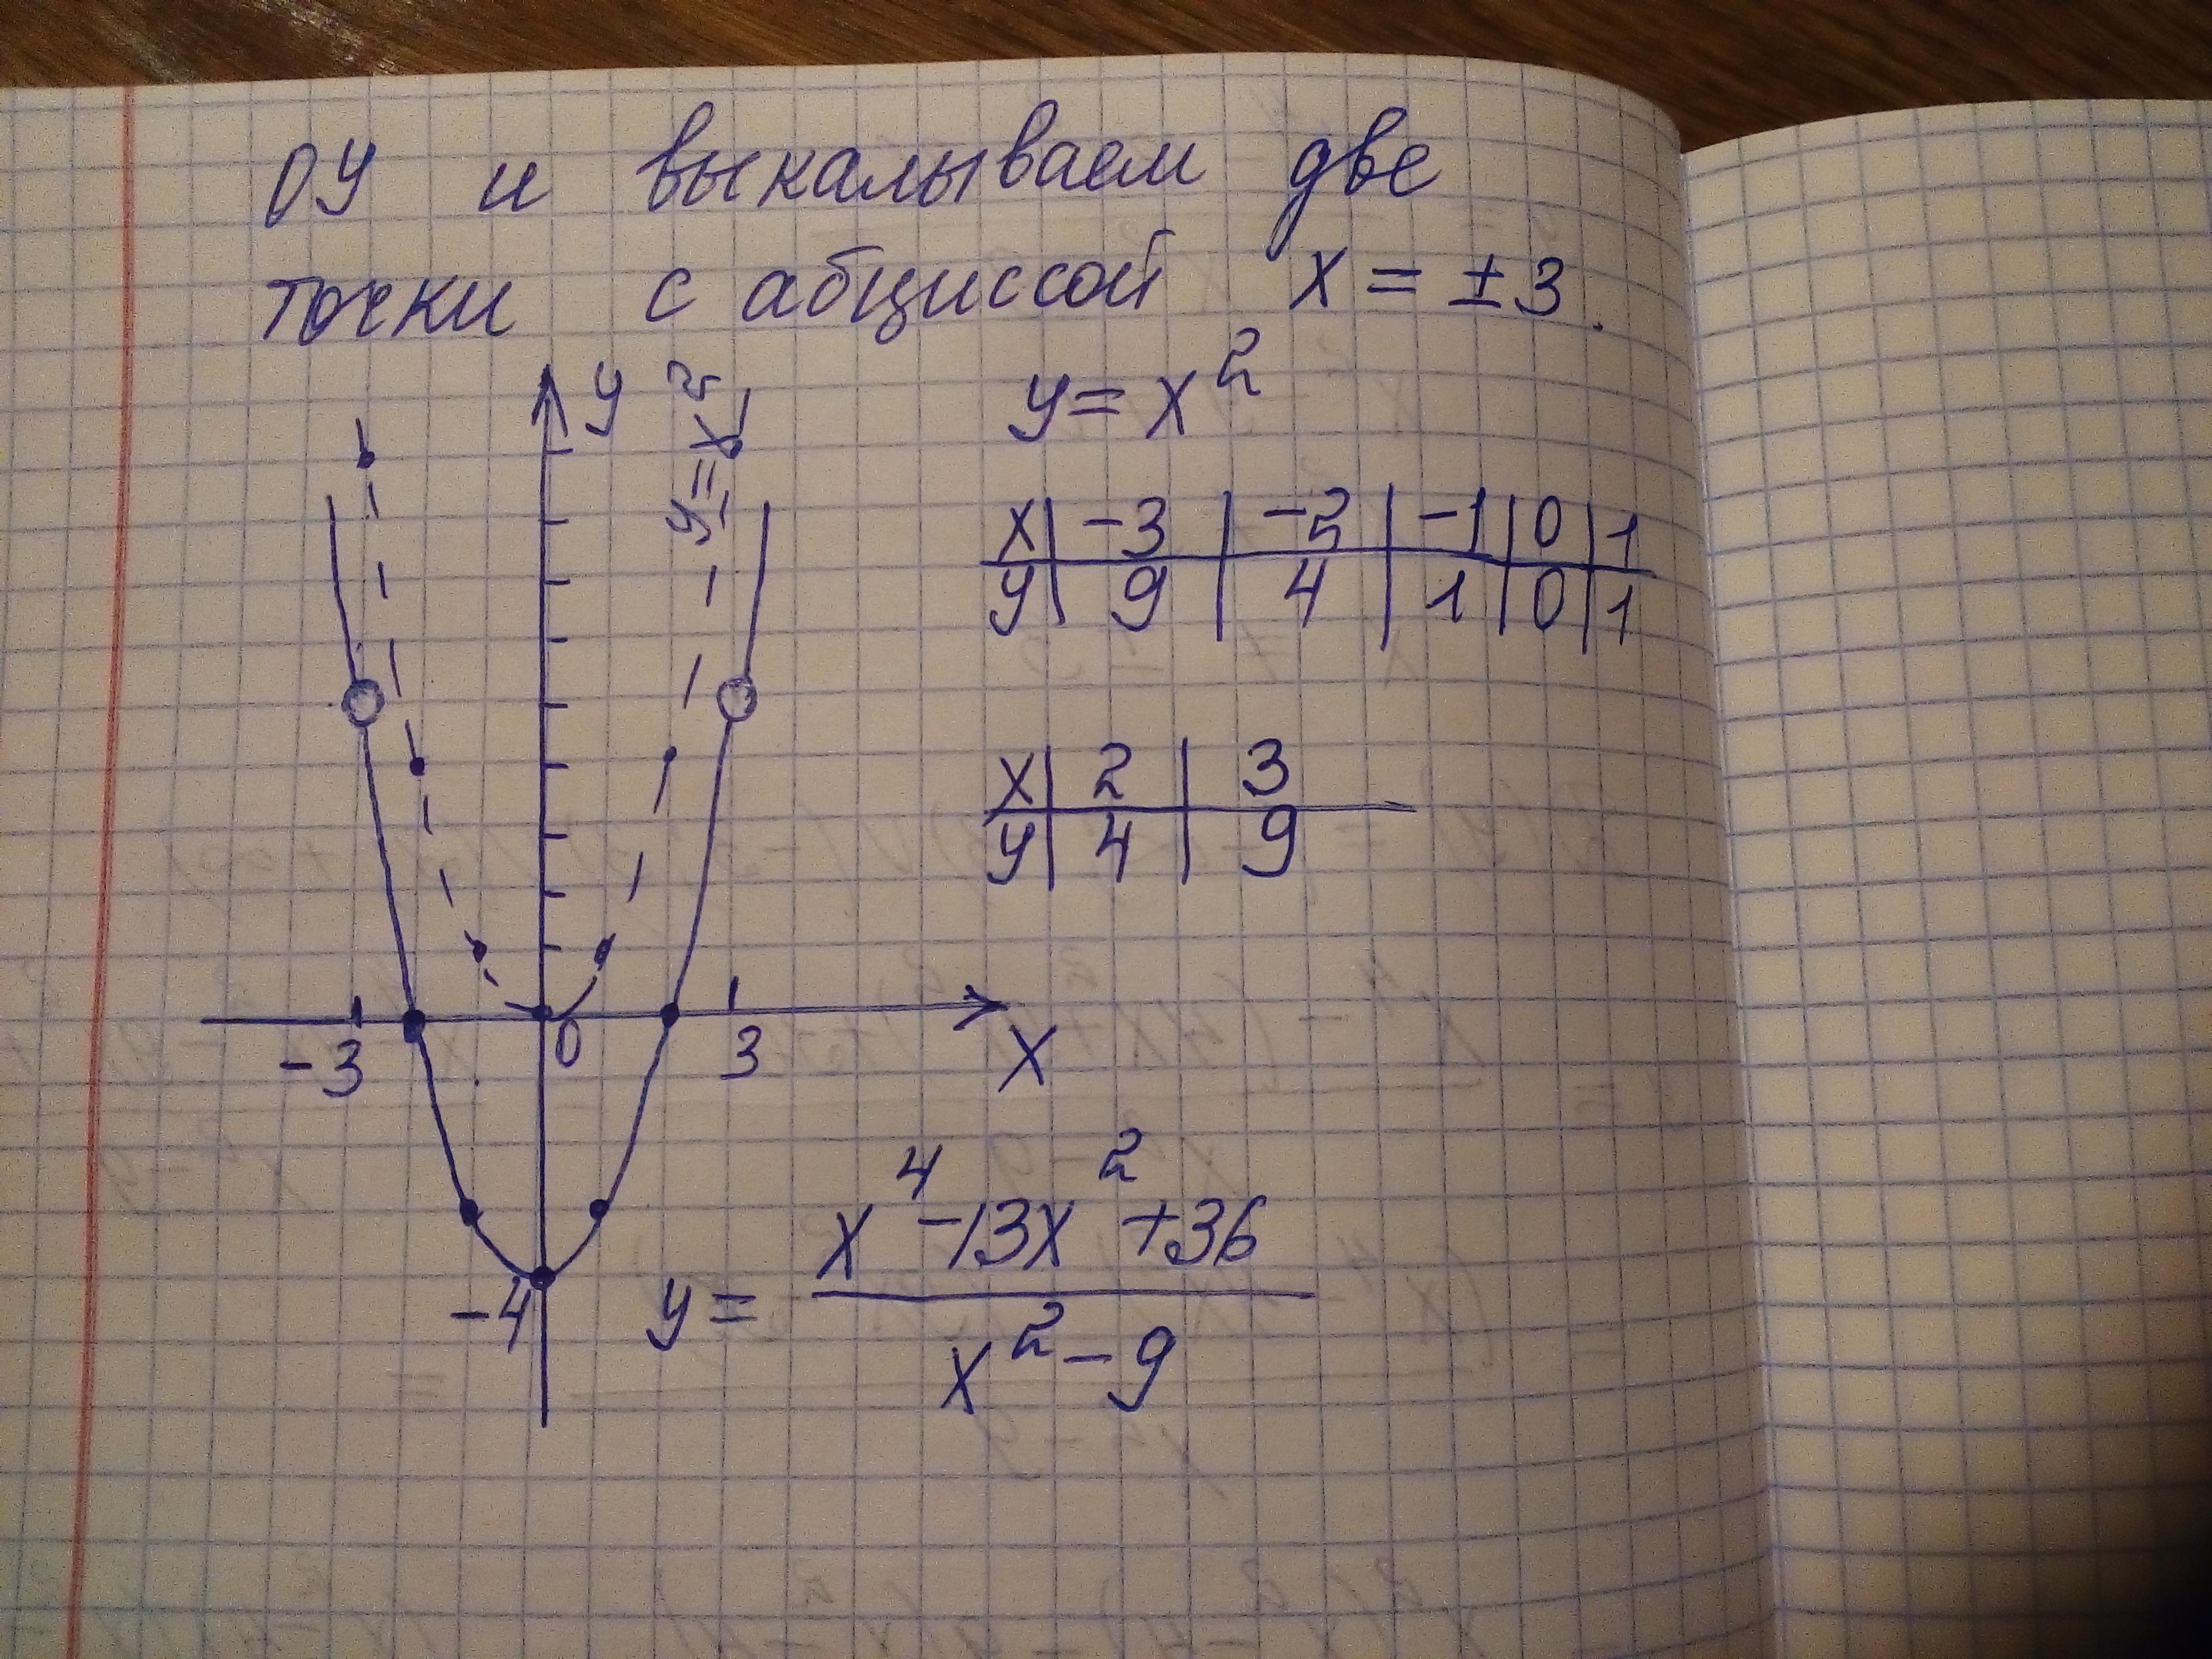 ОУ и выкалываем две
точки с абциссой x = ±3.
y
y = x²
y = x²
x | -3 | -2 | -1 | 0 | 1
y | 9 | 4 | 1 | 0 | 1
x | 2 | 3
y | 4 | 9
-3 0 3 x
-4
y = (x⁴ - 13x² + 36) / (x² - 9)